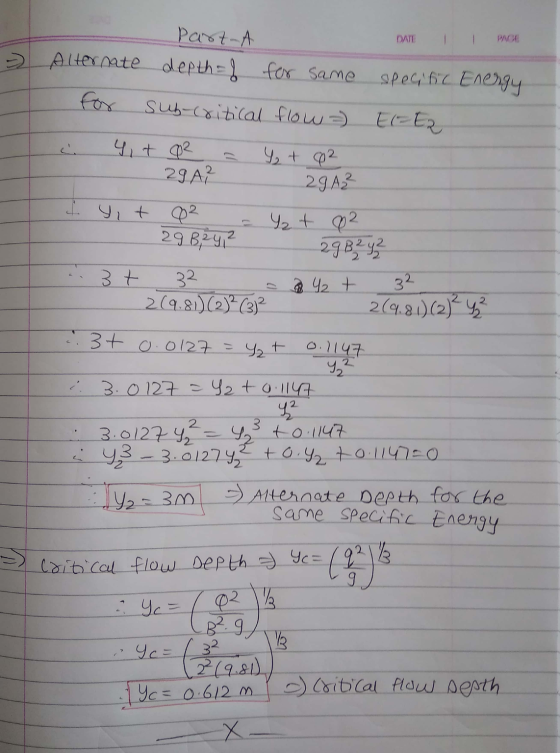 Part-A
DATE | | PAGE
⇒ Alternate depth=} for same specific Energy
for sub-critical flow ⇒ E1=E2
∴ y₁ + Q²/2gA₁² = y₂ + Q²/2gA₂²
∴ y₁ + Q²/2gB₁²y₁² = y₂ + Q²/2gB₂²y₂²
∴ 3 + 3²/2(9.81)(2)²(3)² = y₂ + 3²/2(9.81)(2)² y₂²
∴ 3+ 0.0127 = y₂ + 0.1147/y₂²
∴ 3.0127 = y₂ + 0.1147/y₂²
∴ 3.0127 y₂² = y₂³ + 0.1147
∴ y₂³ - 3.0127y₂² + 0.y₂ + 0.1147=0
∴ y₂ = 3m ⇒ Alternate Depth for the
same specific Energy
⇒ Critical flow Depth ⇒ yc = (q²/g)^1/3
∴ yc = (Q²/B².g)^1/3
∴ yc = (3²/2²(9.81))^1/3
∴ yc = 0.612 m ⇒ Critical flow Depth
X